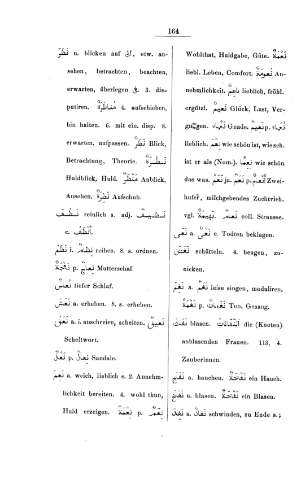 164
نَظَرَ u. blicken auf إلى, etw. an-
sehen, betrachten, beachten,
erwarten, überlegen في. 3. dis-
putiren. مُنَاظَرَةٌ 4. aufschieben,
bis haiten. 6. mit ein. disp. 8.
erwarten, aufpassen. نَظَرٌ Blick,
Betrachtung, Theorie. نَظْرَةٌ
Huldblick, Huld. مَنْظَرٌ Anblick,
Ansehen. نَظِرَةٌ Aufschub.
نَظِيفٌ reinlich a. adj. نَظُفَ
c. أَنْظَفُ
نَظَمَ i. reihen. 8. s. ordnen.
نَعْجَةٌ p. نِعَاجٌ Mutterschaf.
tiefer Schlaf.
نَعَشَ a. erheben. 8. s. erheben.
نَعَقَ a. i. anschreien, scheiten. نَعِيقٌ
Scheltwort.
نَعْلٌ p. نِعَالٌ Sandale.
نَعِمَ a. weich, lieblich s. 2. Annehm-
lichkeit bereiten. 4. wohl thun,
Huld erzeigen. نِعْمَةٌ p. نِعَمٌ
Wohlthat, Huldgabe, Güte. نَعْمَةٌ
liebl. Leben, Comfort. نُعُومَةٌ An-
nehmlichkeit. نَاعِمٌ lieblich, fröhl.
ergötzl. نَعِيمٌ Glück, Lust, Ver-
gnügen. نَعْمَاءُ Gnade.
lieblich. نِعْمَ wie schön ist, wie sch.
ist er als (Nom.). نِعِمَّا wie schön
das was. نَعَمْ ja. نَعَمٌ p. أَنْعَامٌ Zwei-
hufer, milchgebendes Zuchtvieh.
vgl. بَهِيمَةٌ. نَعَامٌ coll. Strausse.
نَعَى a. نَعْيٌ c. Todten beklagen.
schütteln. 4. beugen, zu-
nicken.
نَغَمَ a. نَغْمٌ leise singen, moduliren.
نَغْمَةٌ p. نَغَمَاتٌ Ton, Gesang.
نَفَثَ blasen. النَّفَّاثَاتُ die (Knoten)
anblasenden Frauen. 113, 4.
Zauberinnen.
نَفَحَ a. hauchen. نَفْحَةٌ ein Hauch.
نَفَخَ u. blasen. نَفْخَةٌ ein Blasen.
نَفِدَ a. نَفَادٌ schwinden, zu Ende s.;